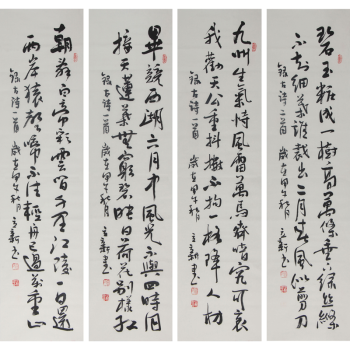 碧玉粧成一樹高萬條垂下綠絲絛
不知細葉誰裁出二月春風似剪刀
錄古詩一首 歲在甲午秋月 立新書
九州生氣恃風雷萬馬齊喑究可哀
我勸天公重抖擻不拘一格降人材
錄古詩一首 歲在甲午秋月 立新書
畢竟西湖六月中風光不與四時同
接天蓮葉無窮碧映日荷花別樣紅
錄古詩一首 歲在甲午秋月 立新書
朝辭白帝彩雲間千里江陵一日還
兩岸猿聲啼不住輕舟已過萬重山
錄古詩一首 歲在甲午秋月 立新書